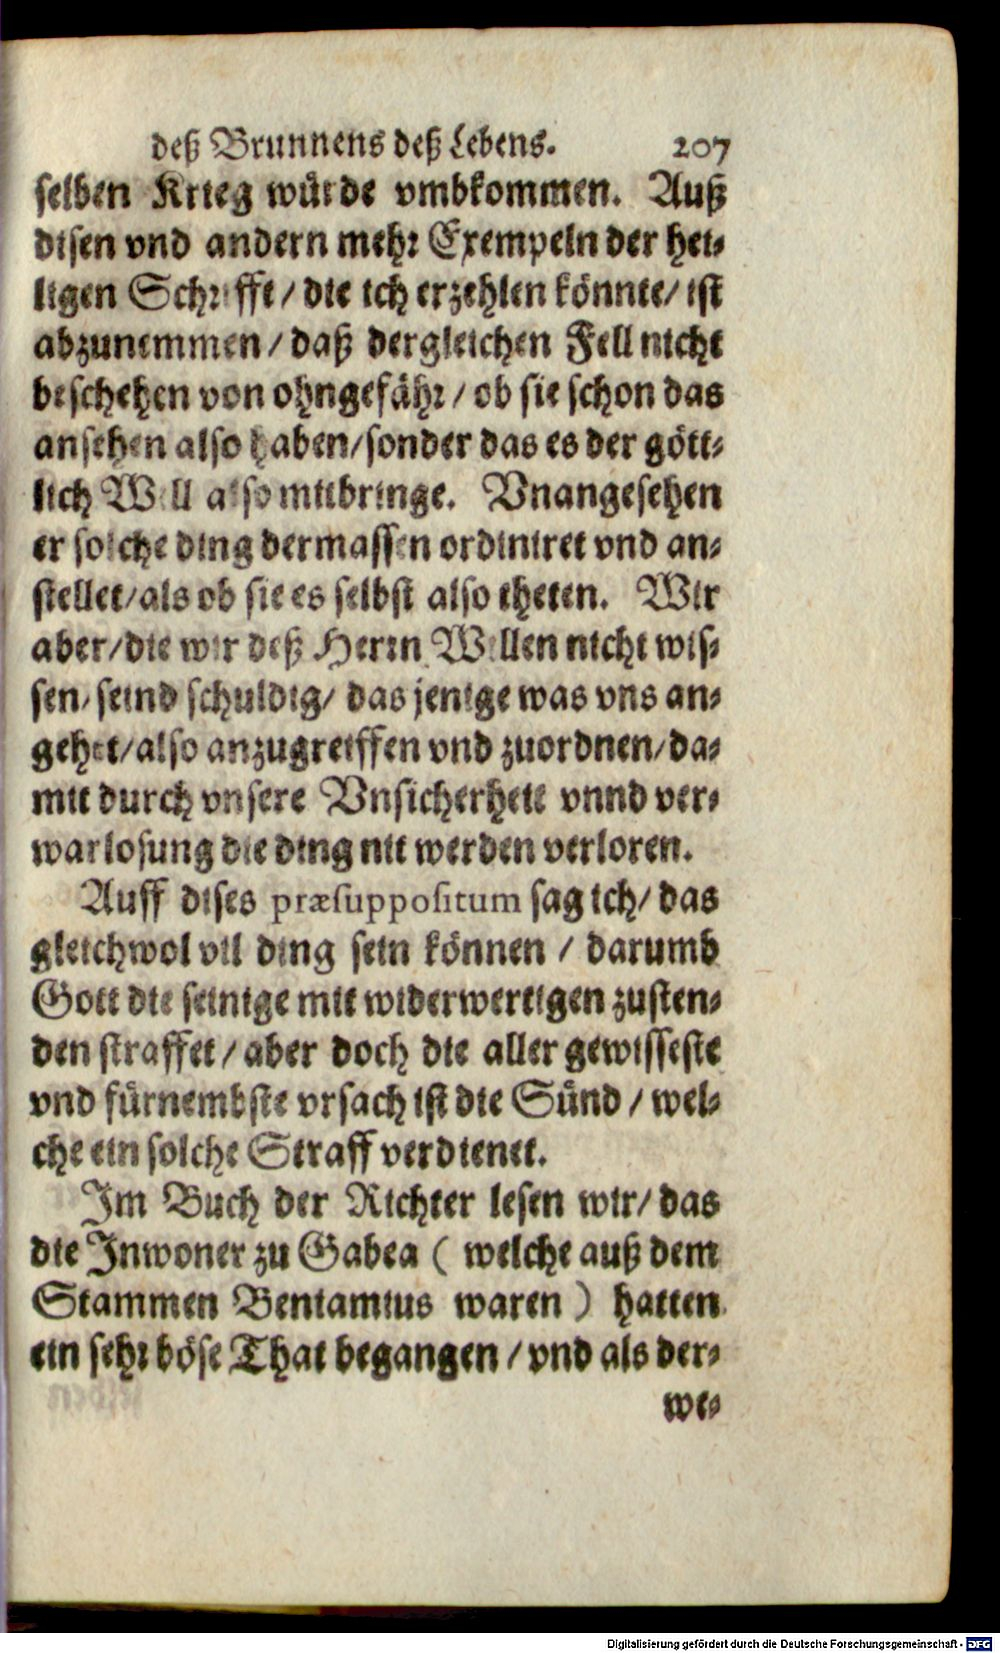 deß Brunnens deß Lebens. 207
selben Krieg würde vmbkommen. Auß
disen vnd andern mehr Exempeln der hei-
ligen Schrifft / die ich erzehlen könnte / ist
abzunemmen / daß dergleichen Fell nicht
beschehen von ohngefähr / ob sie schon das
ansehen also haben / sonder das es der gött-
lich Will also mitbringe. Vnangesehen
er solche ding dermassen ordiniret vnd an-
stellet / als ob sie es selbst also theten. Wir
aber / die wir deß Herrn Willen nicht wis-
sen / seind schuldig / das jenige was vns an-
gehet / also anzugreiffen vnd zuordnen / da-
mit durch vnsere Vnsicherheit vnnd ver-
warlosung die ding nit werden verloren.
Auff dises præsuppositum sag ich / das
gleichwol vil ding sein können / darumb
Gott die seinige mit widerwertigen zusten-
den straffet / aber doch die aller gewisseste
vnd fürnembste vrsach ist die Sünd / wel-
che ein solche Straff verdienet.
Im Buch der Richter lesen wir / das
die Inwoner zu Gabea ( welche auß dem
Stammen Beniamius waren ) hatten
ein sehr böse That begangen / vnd als der-
we-
Digitalisierung gefördert durch die Deutsche Forschungsgemeinschaft - DFG